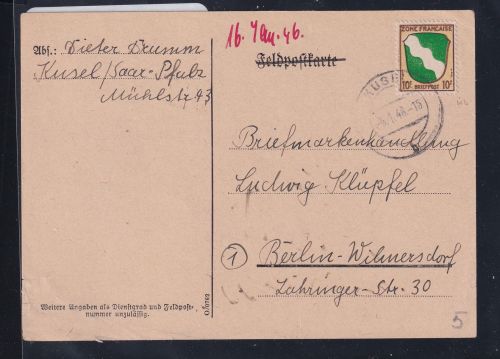 Abs.: Dieter Drumm
Kusel/Saar-Pfalz
Mühlstr. 43
16. Jan. 46.
Feldpostkarte
ZONE FRANÇAISE
10 F BRIEFPOST 10 F
Briefmarkenhandlung
Ludwig Klüpfel
1 Berlin-Wilmersdorf
Lähringer-Str. 30
Weitere Angaben als Dienstgrad und Feldpost-
nummer unzulässig.
5